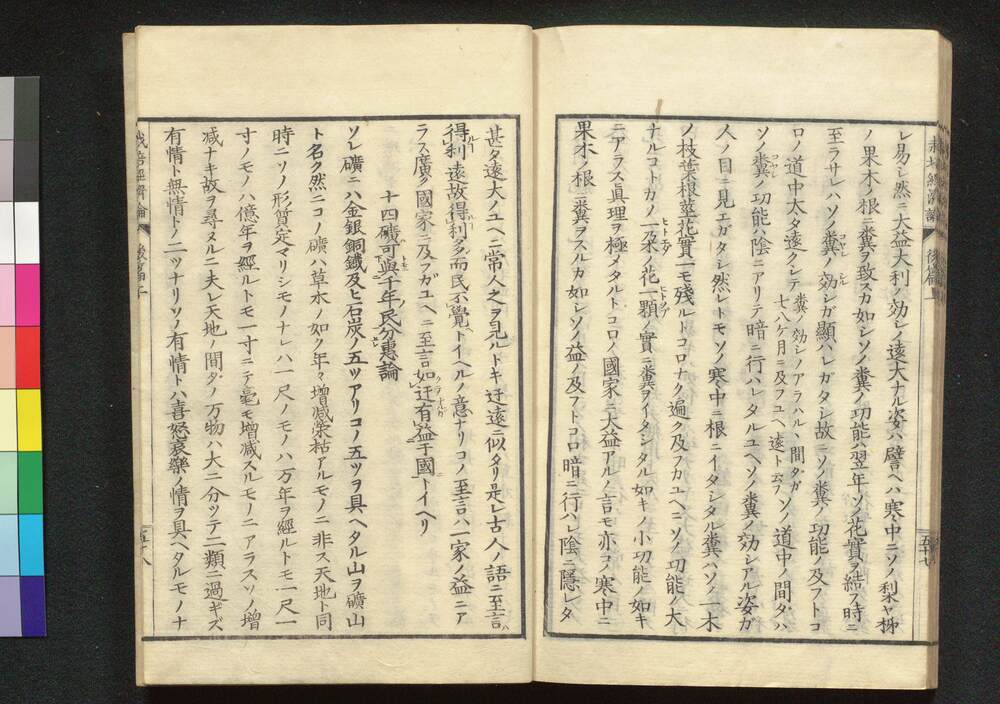 レ易シ然ニ大益大利ノ効シノ遠大ナル姿ハ譬ヘハ寒中ニソノ梨ヤ柳
ノ果木ノ根ニ糞ヲ致スカ如シソノ糞ノ功能ハ翌年ソノ花實ヲ結フ時ニ
至ラサレハソノ糞ノ効シガ顯ハレガタシ故ニソノ糞ノ功能ノ及フトコ
ロノ道中太タ遠クシテ糞ノ効シノアラハルヽ間タガ七八ケ月ニ及フユヘ遠ト云フソノ道中ノ間タハ
ソノ糞ノ功能ハ陰ニアリテ暗ニ行ハレタルユヘソノ糞ノ効シアル姿ガ
人ノ目ニ見エガタシ然レトモソノ寒中ニ根ニイタシタル糞ハソノ一木
ノ枝葉根莖花實一モ殘ルトコロナク遍ク及フカユヘニソノ功能ノ大
ナルコトカノ一朶ノ花一顆ノ實ニ糞ヲイタシタル如キノ小功能ノ如キ
ニアラス眞理ヲ極メタルトコロノ國家ニ大益アルノ言モ亦コノ寒中ニ
果木ノ根ニ糞ヲスルカ如シソノ益ノ及フトコロ暗ニ行ハレ陰ニ隱レタ
五十七
甚タ遠大ノユヘニ常人之ヲ見ルトキ迂遠ニ似タリ是レ古人ノ語ニ至言ハ
得利遠故得利多而民不覺トイヘルノ意ナリコノ至言ハ一家ノ益ニア
ラス廣ク國家ニ及フガユヘニ至言如迂有益于國トイヘリ
十四礦可與千年民分惠論
ソレ礦ニハ金銀銅鐵及ヒ石炭ノ五ツアリコノ五ツヲ具ヘタル山ヲ礦山
ト名ク然ニコノ礦ハ草木ノ如ク年々増減榮枯アルモノニ非ス天地ト同
時ニソノ形質定マリシモノナレハ一尺ノモノハ万年ヲ經ルトモ一尺一
寸ノモノハ億年ヲ經ルトモ一寸ニテ毫モ增减スルモノニアラスソノ增
减ナキ故ヲ尋タルニ夫レ天地ノ間タノ万物ハ大ニ分ツテ二類ニ過ギズ
有情ト無情トノ二ツナリソノ有情トハ喜怒哀樂ノ情ヲ具ヘタルモノナ
栽培經濟論
後篇上
五十八